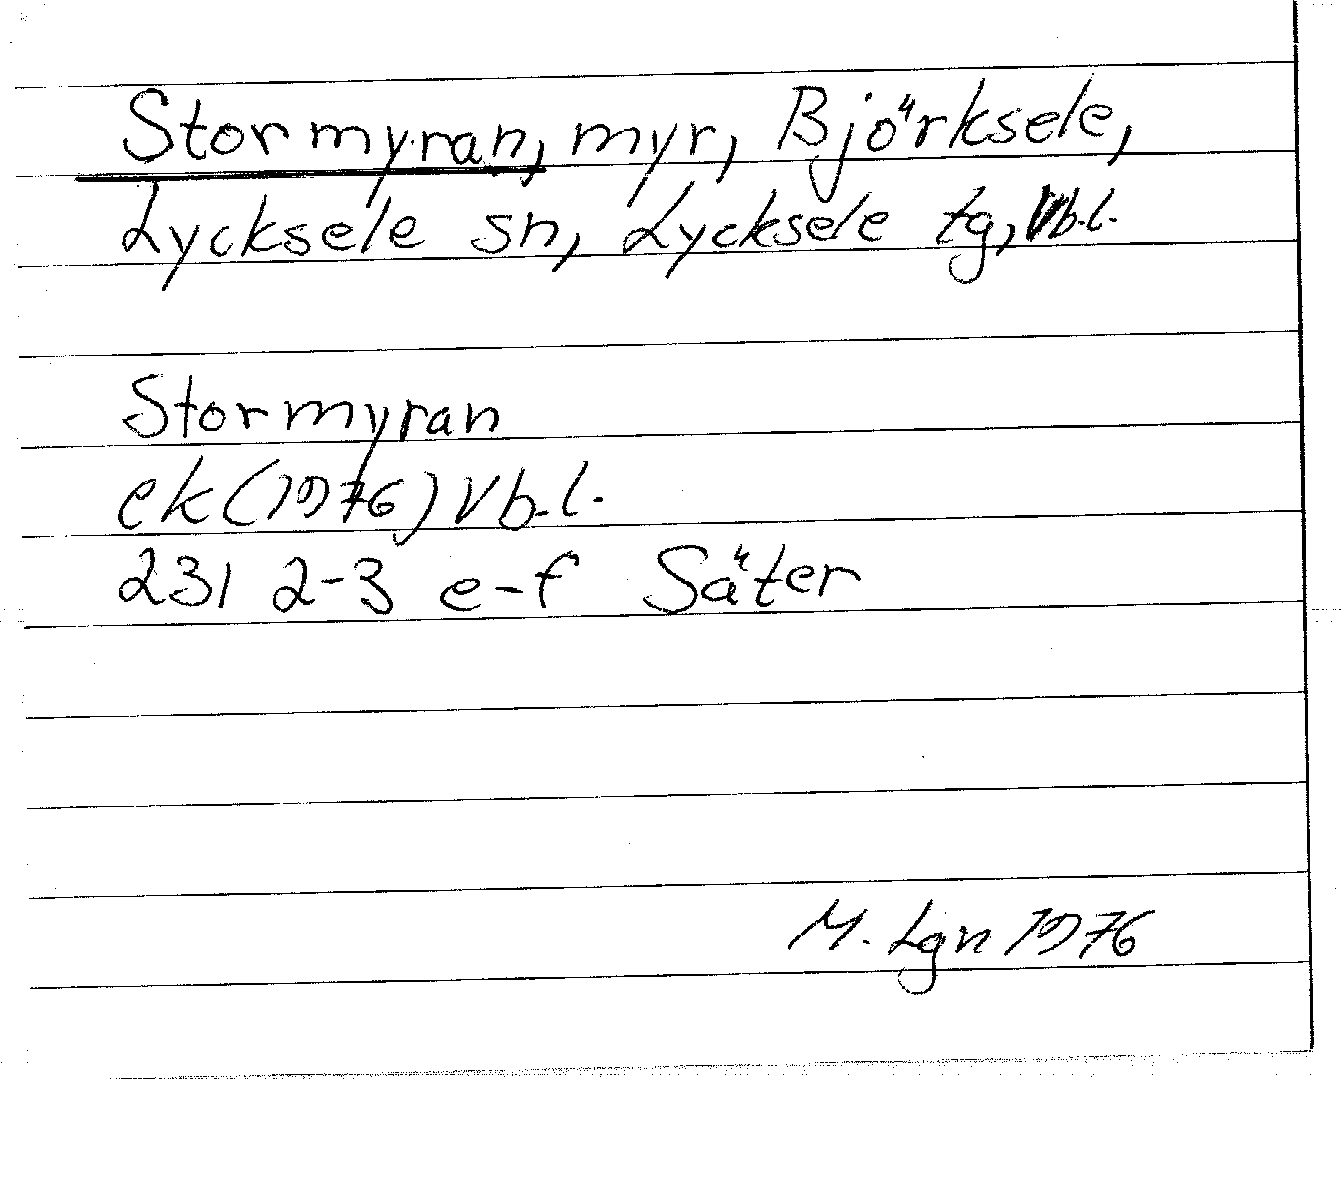 Stormyran, myr, Björksele,
Lycksele sn, Lycksele tg, Vb.l.
Stormyran
ek (1976) Vb.l.
231 2-3 e-f Säter
M. Lgn 1976